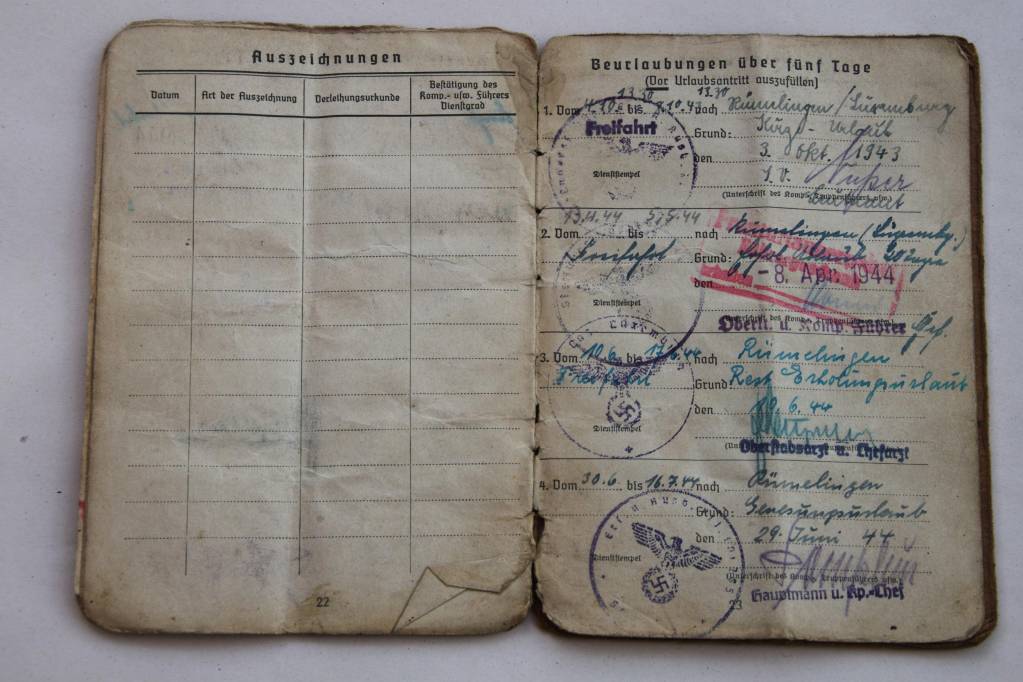 Auszeichnungen
Datum
Art der Auszeichnung
Verleihungsurkunde
Bestätigung des
Komp.- usw. Führers
Dienstgrad
22
Beurlaubungen über fünf Tage
(Vor Urlaubsantritt auszufüllen)
13.30 13.30
1. Vom 4.10. bis 8.10.43 nach Rümelingen/Luxemburg
Freifahrt
Grund: Kurz-Urlaub
den 3. Okt. 1943
Dienststempel
I.V.
(Unterschrift des Komp.- Truppenführers usw.)
Leutnant
2. Vom 13.4.44 bis 5.5.44 nach Rümelingen/(Luxembg.)
Freifahrt
Grund: Urlaub 20 Tage
den -8. Apr. 1944
Dienststempel
(Unterschrift des Komp.- Truppenführers usw.)
Oberlt. u. Komp. Führer
3. Vom 10.6. bis 17.6.44 nach Rümelingen
Freifahrt
Grund: Rest Erholungsurlaub
den 10.6.44
Dienststempel
Oberstabsarzt u. Chefarzt
4. Vom 30.6. bis 16.7.44 nach Rümelingen
Grund: Genesungsurlaub
den 29. Juni 44
Dienststempel
(Unterschrift des Komp.- Truppenführers usw.)
Hauptmann u. Kp.-Chef
23